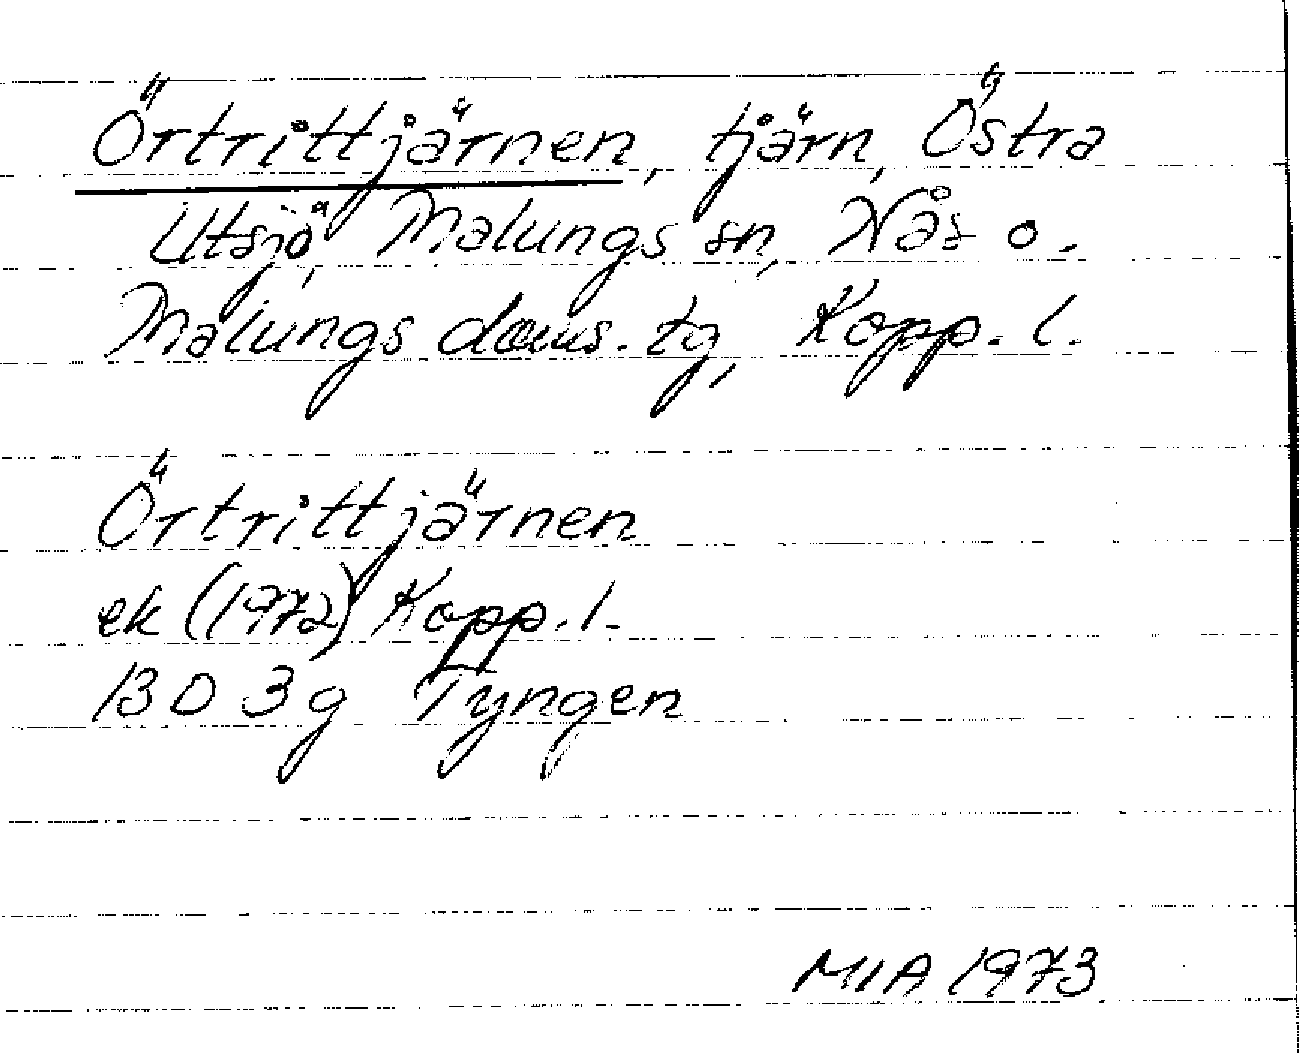 Örtrittjärnen, tjärn, Östra
Utsjö, Malungs sn, Nås o.
Malungs doms. tg, Kopp. l.
Örtrittjärnen
ek (1972) Kopp. l.
13 D 3 g Tyngen
MIA 1973